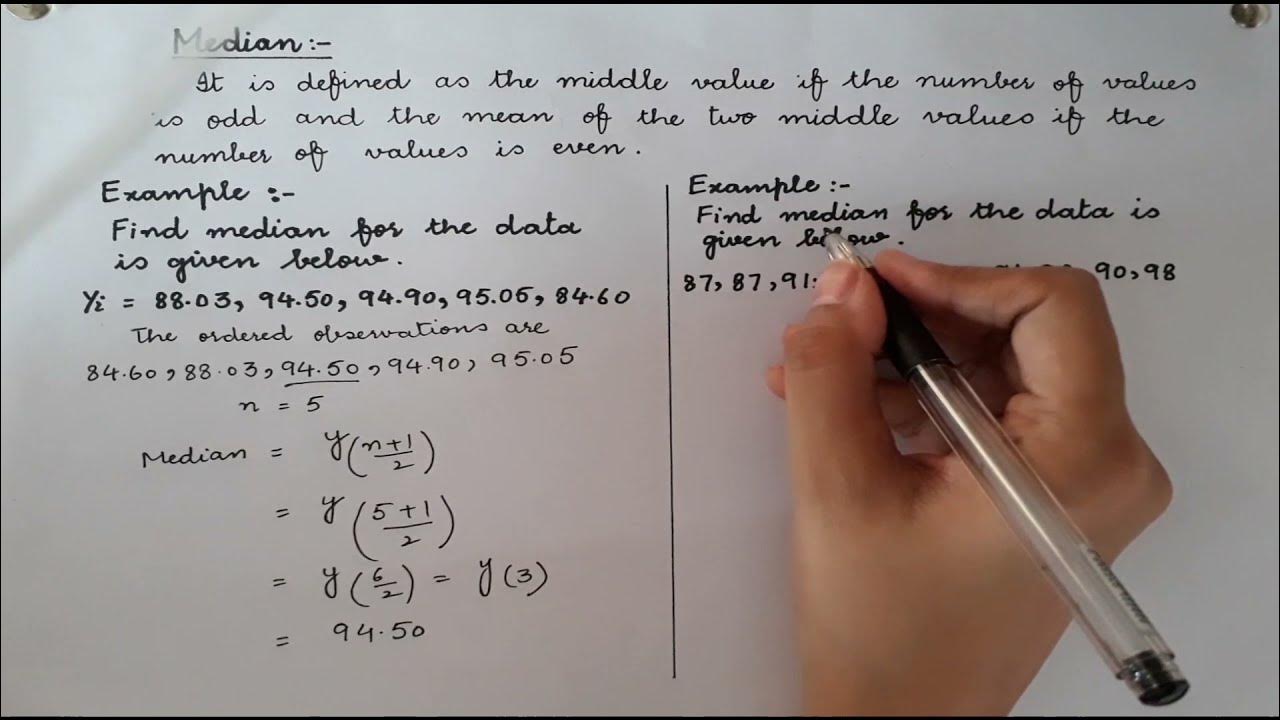 Median :-
It is defined as the middle value if the number of values
is odd and the mean of the two middle values if the
number of values is even.
Example :-
Find median for the data
is given below.
Yi = 88.03, 94.50, 94.90, 95.05, 84.60
The ordered observations are
84.60, 88.03, 94.50, 94.90, 95.05
n = 5
Median = y(n+1/2)
= y(5+1/2)
= y(6/2) = y(3)
= 94.50
Example :-
Find median for the data is
given below.
87, 87, 91 90, 98